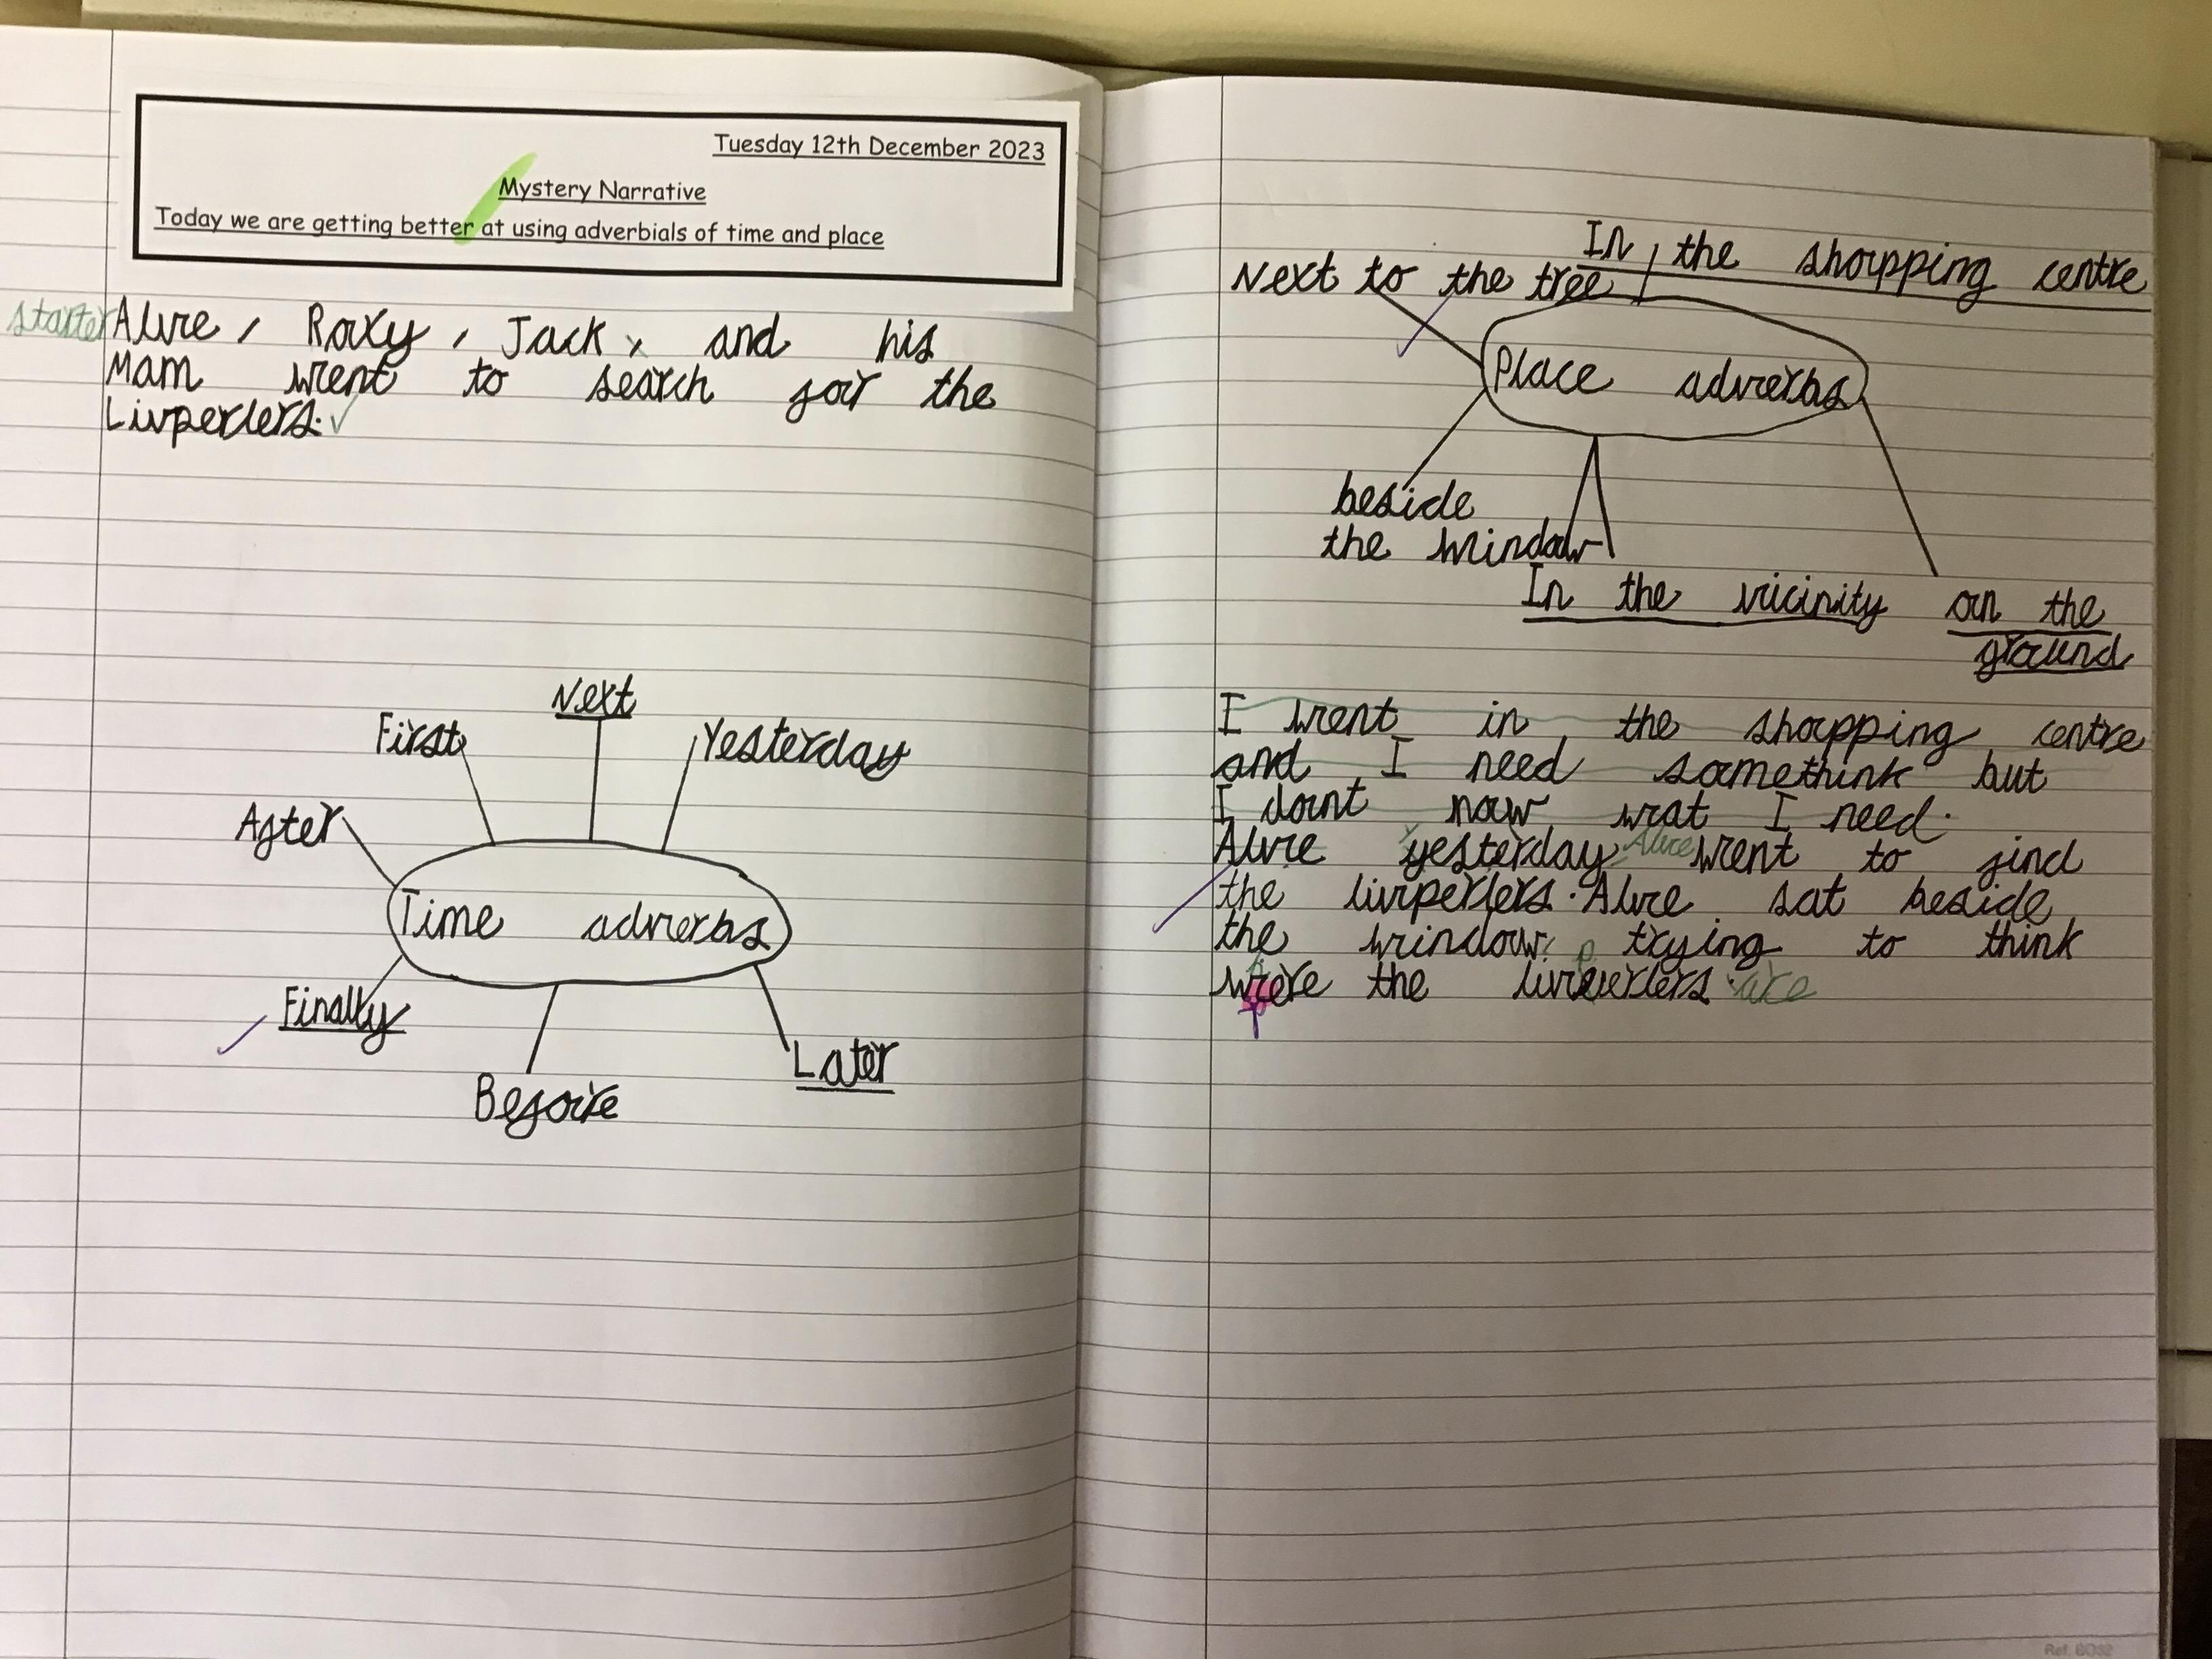 Tuesday 12th December 2023
Mystery Narrative
Today we are getting better at using adverbials of time and place
starter Alvre, Roxy, Jack, and his
Mam went to search for the
Livperlers.
Next
First
Yesterday
After
Time adverbs
Finally
Before
Later
In the shopping centre
Next to the tree
Place adverbs
beside
the window
In the vicinity
on the
ground
I went in the shopping centre
and I need somethink but
I dont now wat I need.
Alvre yesterday Alvre went to find
the livperlers. Alvre sat beside
the window trying to think
were the livperlers are
Ref.